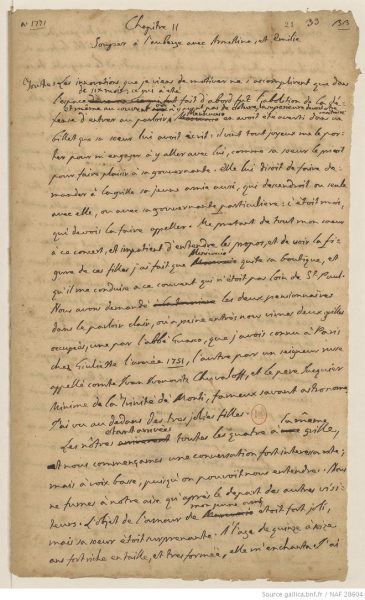 n° 1771
21 33 1313
Chapitre II
Souper à l'auberge avec Armelline, et Emilie
Toutes les innovations que je viens de motiver ne s'accomplirent que dans
de six mois; ce qui a été
l'espace fait d'abord fut l'abolition de la dé-
fense d'entrer au parloir;
avoit été averti dans un
billet que sa sœur lui avoit écrit; il vint tout joyeux me le por-
ter pour m'engager à y aller avec lui, comme sa sœur le prioit
pour faire plaisir à sa gouvernante. Elle lui disoit de faire de-
mander à la grille sa jeune amie aussi, qui descendroit ou seule
avec elle, ou avec sa gouvernante particuliere: c'étoit moi,
qui devois la faire appeller. Me pretant de tout mon cœur
à ce concert, et impatient d'entendre les propos, et de voir la fi-
gure de ces filles j'ai fait que Menicuccio quite sa boutique, et
qu'il me conduise à ce couvent qui n'étoit pas loin de St. Paul.
Nous avons demandé les deux pensionnaires
dans le parloir clair, où à peine entrés nous vimes deux grilles
occupées, une par l'abbé Guasco, que j'avois connu à Paris
chez Giuliette l'année 1751, l'autre par un seigneur russe
appellé comte Ivan Ivanovitz Chouvaloff, et le pere Jacquier
Minime de la Trinité de Monti, fameux savant astronome.
J'ai vu au dedans des tres jolies filles.
étant arrivées la même
Les nôtres toutes les quatre à grille,
nous commençames une conversation fort interessante;
mais à voix basse, puisqu'on pouvoit nous entendre. Nous
ne fumes à nôtre aise qu'après le depart des autres visi-
teurs. L'objet de l'amour de mon jeune ami étoit fort joli,
mais sa sœur étoit surprenante. A l'age de quinze à seize
ans fort riche en taille, et tres formée, elle m'enchanta. J'ai
Source gallica.bnf.fr / NAF 28604